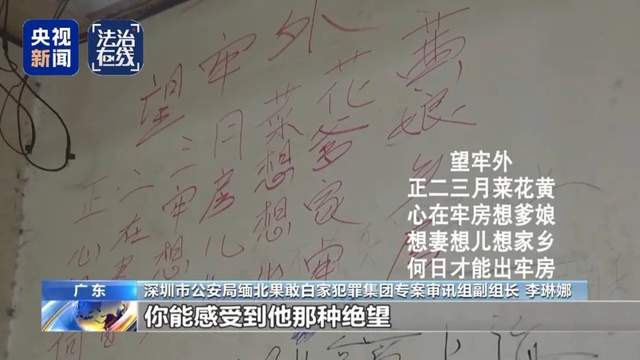 央视新闻
法治在线
望牢外
正二三月菜花黄
心在牢房想爹娘
想儿想家乡
何
牢房
望牢外
正二三月菜花黄
心在牢房想爹娘
想妻想儿想家乡
何日才能出牢房
广东
深圳市公安局缅北果敢白家犯罪集团专案审讯组副组长 李琳娜
你能感受到他那种绝望